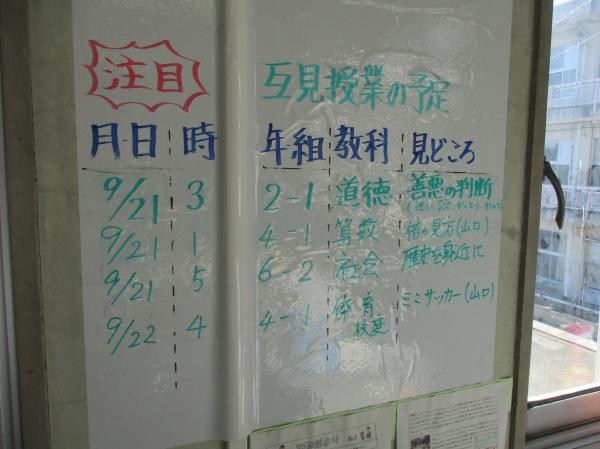 注目
互見授業の予定
月日 時 年組 教科 見どころ
9/21 3 2-1 道徳 善悪の判断
9/21 1 4-1 算数 倍の見方(山口)
9/21 5 6-2 社会 歴史を身近に
9/22 4 4-1 体育 ミニサッカー(山口)
校庭